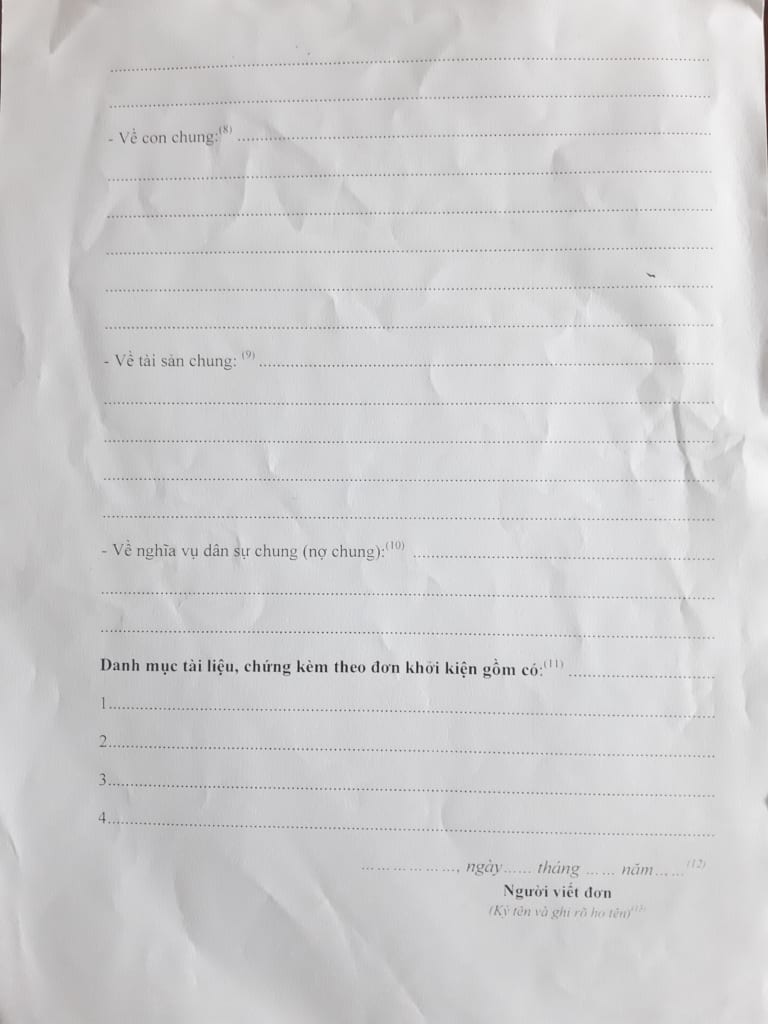 - Về con chung:(8)
- Về tài sản chung: (9)
- Về nghĩa vụ dân sự chung (nợ chung):(10)
Danh mục tài liệu, chứng kèm theo đơn khởi kiện gồm có:(11)
1.
2.
3.
4.
..................., ngày...... tháng ...... năm......(12)
Người viết đơn
(Ký tên và ghi rõ họ tên)(13)